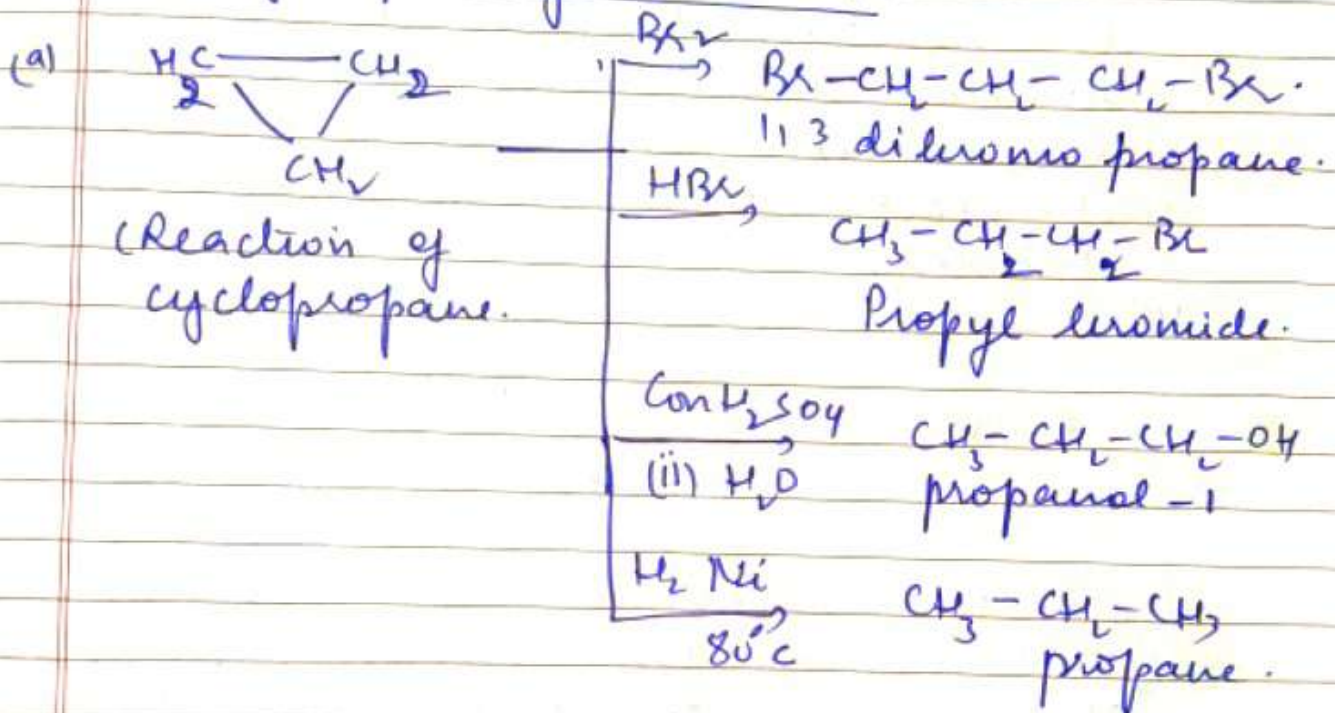 (a) H2C — CH2
CH2
(Reaction of
cyclopropane.
Br2
Br-CH2-CH2-CH2-Br.
1,3 dibromo propane.
HBr
CH3-CH2-CH2-Br
Propyl bromide.
Con H2SO4
(ii) H2O
CH3-CH2-CH2-OH
propanol-1
H2 Ni
80°C
CH3-CH2-CH3
propane.